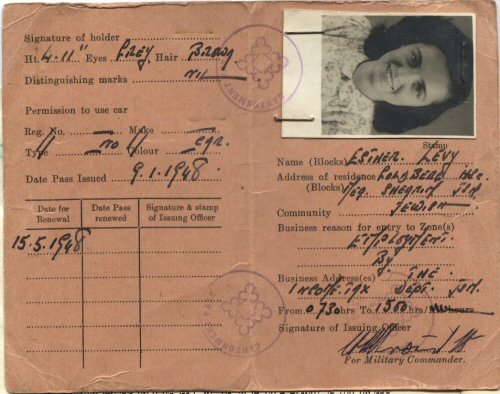 Signature of holder
Ht. 4-11" Eyes Grey Hair Brown
Distinguishing marks nil
Permission to use car
Reg. No. — Make —
Type no Colour car.
Date Pass Issued 9.1.1948
Date for Renewal
Date Pass renewed
Signature & stamp of Issuing Officer
15.5.1948
Stamp
Name (Blocks) ESTHER LEVY
Address of residence GOLDBERG HSE.
(Blocks) JSM.
Community JEWISH
Business reason for entry to Zone(s)
EMPLOYMENT.
By
Business Address(es) THE
INCOME TAX DEPT. JSM.
From 0730 hrs To 1500 hrs/ hours
Signature of Issuing Officer
For Military Commander.